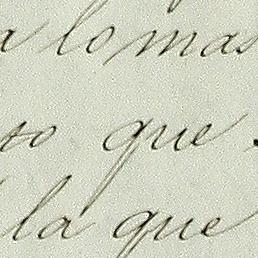 a lo mas
so que
la que